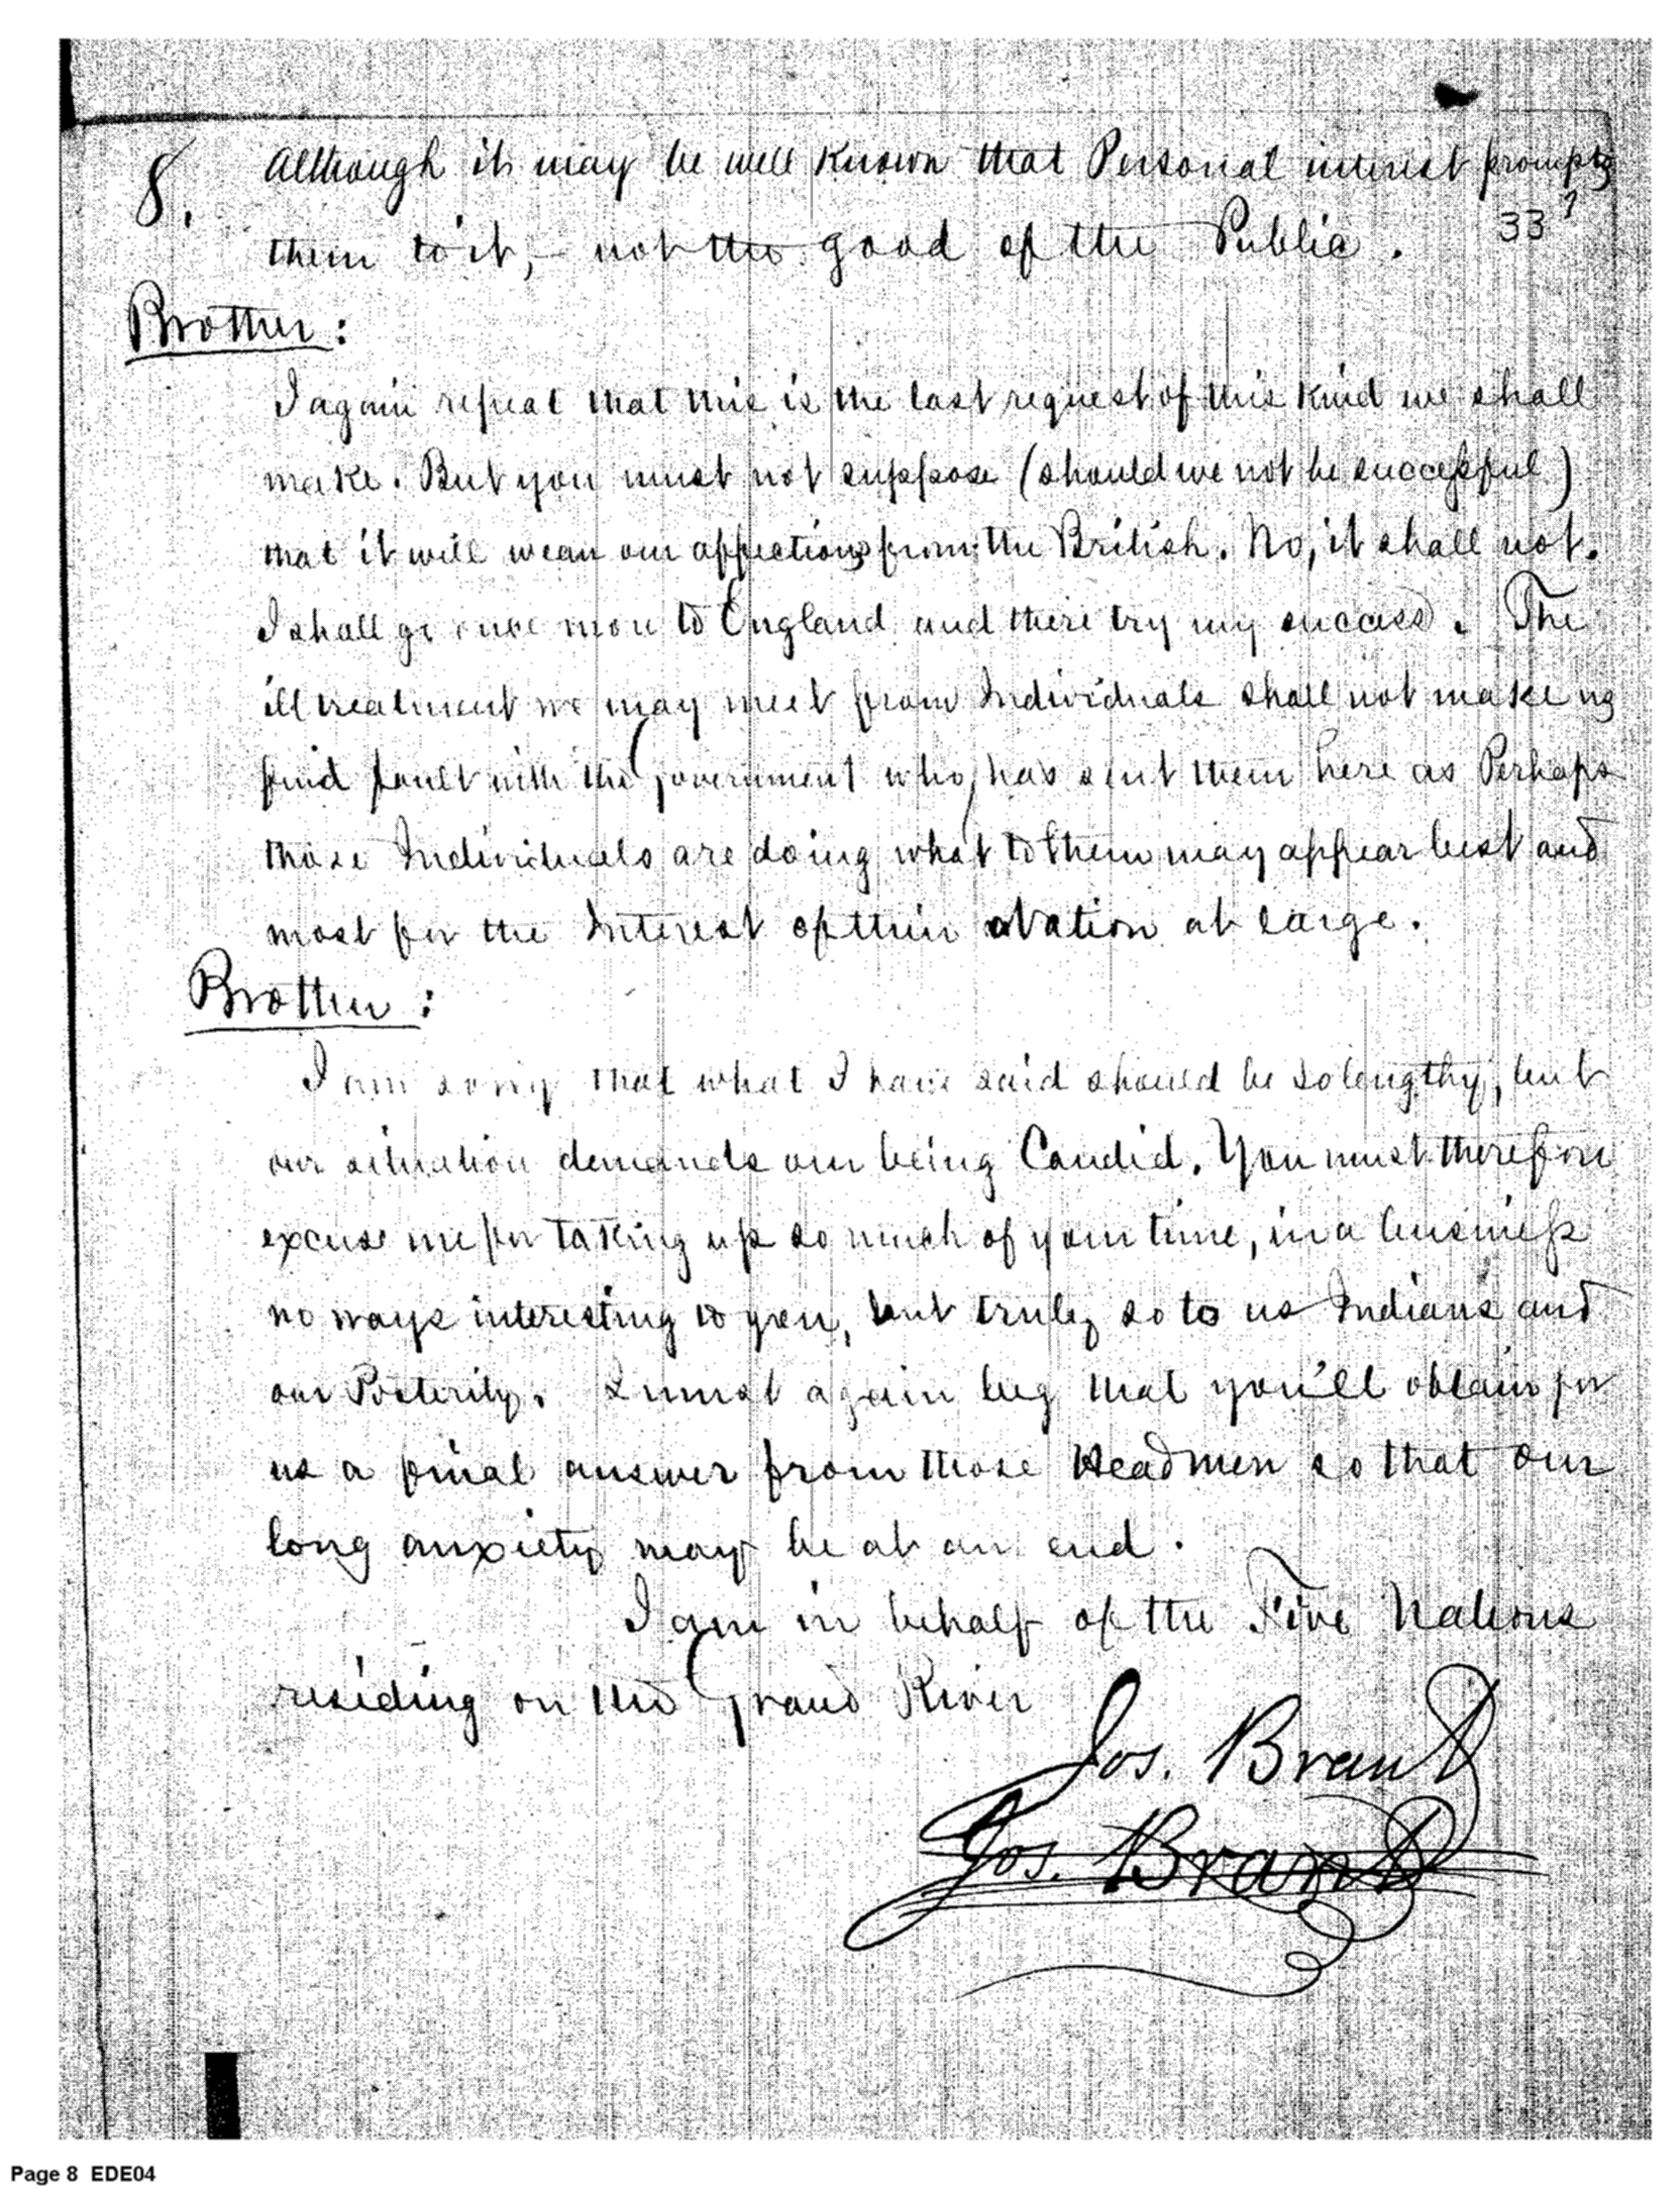 8. Although it may be well Known that Personal interest prompts
them to it, - not the good of the Public. 33
Brother:
I again repeat that this is the last request of this Kind we shall
make. But you must not suppose (should we not be successful)
that it will wean our affections from the British. No, it shall not.
I shall go once more to England and there try my success. The
ill treatment we may meet from Individuals shall not make us
find fault with the Government who has sent them here as Perhaps
those Individuals are doing what to them may appear best and
most for the Interest of their Nation at large.
Brother:
I am sorry that what I have said should be so lengthy, but
our situation demands our being Candid. You must therefore
excuse me for taking up so much of your time, in a business
no ways interesting to you, but truly so to us Indians and
our Posterity. I must again beg that you'll obtain for
us a final answer from those Headmen so that our
long anxiety may be at an end.
I am in behalf of the Five Nations
residing on the Grand River
Jos. Brant
Jos. Brant
Page 8 EDE04